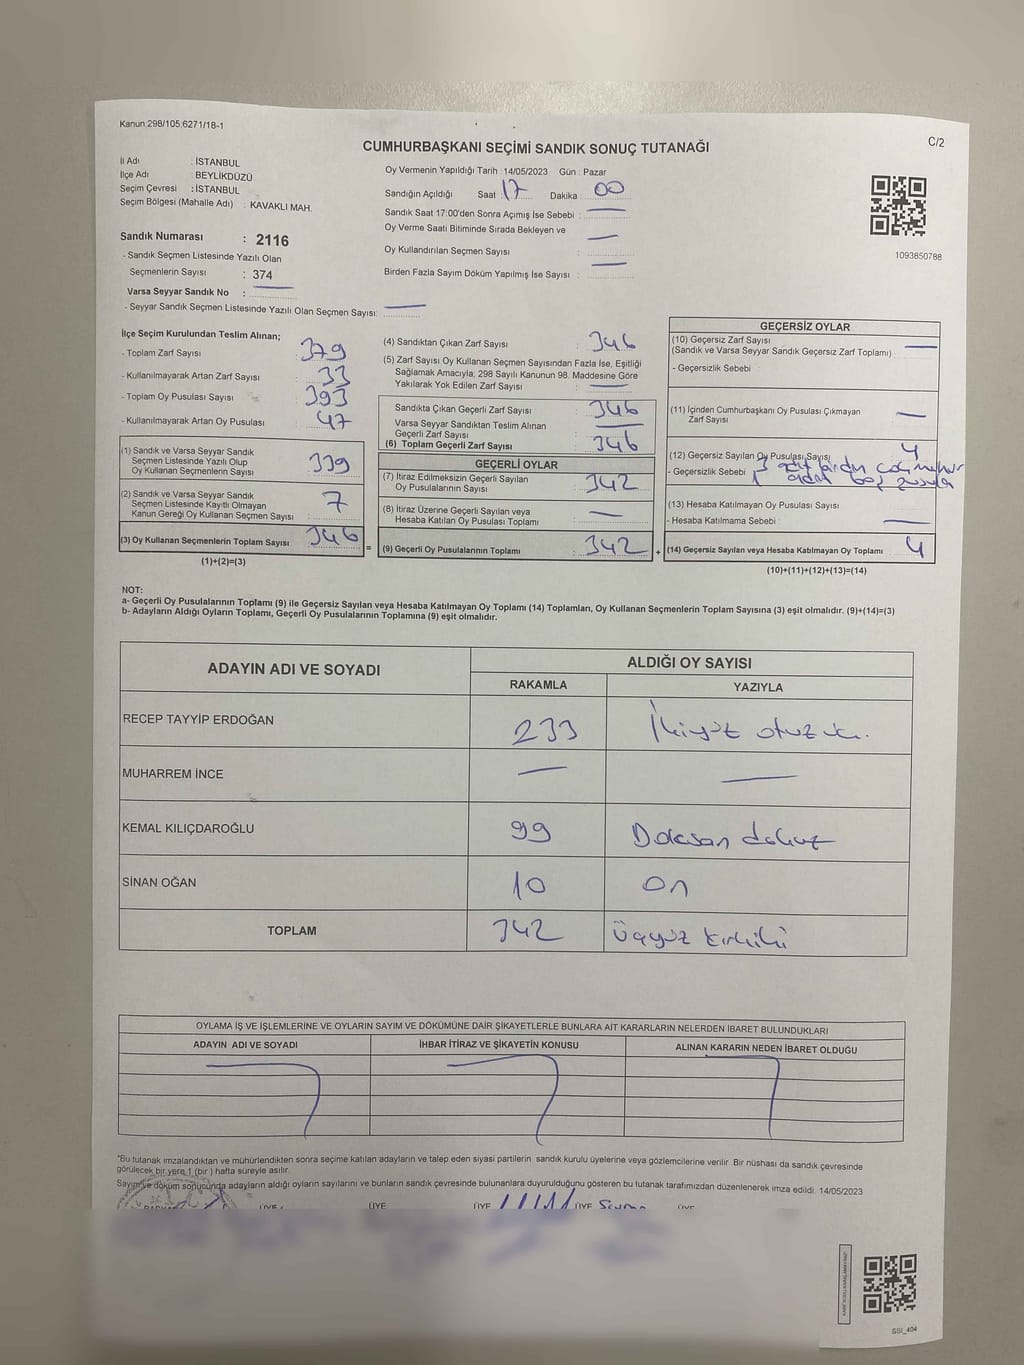 Kanun:298/105;6271/18-1
C/2
CUMHURBAŞKANI SEÇİMİ SANDIK SONUÇ TUTANAĞI
İl Adı : İSTANBUL
İlçe Adı : BEYLİKDÜZÜ
Seçim Çevresi : İSTANBUL
Seçim Bölgesi (Mahalle Adı) : KAVAKLI MAH.
Sandık Numarası : 2116
- Sandık Seçmen Listesinde Yazılı Olan
Seçmenlerin Sayısı : 374
Varsa Seyyar Sandık No :
- Seyyar Sandık Seçmen Listesinde Yazılı Olan Seçmen Sayısı:
Oy Vermenin Yapıldığı Tarih : 14/05/2023 Gün : Pazar
Sandığın Açıldığı Saat : 17 Dakika : 00
Sandık Saat 17:00'den Sonra Açımış İse Sebebi :
Oy Verme Saati Bitiminde Sırada Bekleyen ve
Oy Kullandırılan Seçmen Sayısı :
Birden Fazla Sayım Döküm Yapılmış İse Sayısı :
1093850788
İlçe Seçim Kurulundan Teslim Alınan;
- Toplam Zarf Sayısı : 379
- Kullanılmayarak Artan Zarf Sayısı : 33
- Toplam Oy Pusulası Sayısı : 393
- Kullanılmayarak Artan Oy Pusulası : 47
(1) Sandık ve Varsa Seyyar Sandık
Seçmen Listesinde Yazılı Olup
Oy Kullanan Seçmenlerin Sayısı : 339
(2) Sandık ve Varsa Seyyar Sandık
Seçmen Listesinde Kayıtlı Olmayan
Kanun Gereği Oy Kullanan Seçmen Sayısı : 7
(3) Oy Kullanan Seçmenlerin Toplam Sayısı : 346
(1)+(2)=(3)
(4) Sandıktan Çıkan Zarf Sayısı : 346
(5) Zarf Sayısı Oy Kullanan Seçmen Sayısından Fazla İse, Eşitliği
Sağlamak Amacıyla; 298 Sayılı Kanunun 98. Maddesine Göre
Yakılarak Yok Edilen Zarf Sayısı :
Sandıkta Çıkan Geçerli Zarf Sayısı : 346
Varsa Seyyar Sandıktan Teslim Alınan
Geçerli Zarf Sayısı :
(6) Toplam Geçerli Zarf Sayısı : 346
GEÇERLİ OYLAR
(7) İtiraz Edilmeksizin Geçerli Sayılan
Oy Pusulalarının Sayısı : 342
(8) İtiraz Üzerine Geçerli Sayılan veya
Hesaba Katılan Oy Pusulası Toplamı :
= (9) Geçerli Oy Pusulalarının Toplamı : 342
GEÇERSİZ OYLAR
(10) Geçersiz Zarf Sayısı
(Sandık ve Varsa Seyyar Sandık Geçersiz Zarf Toplamı) :
- Geçersizlik Sebebi :
(11) İçinden Cumhurbaşkanı Oy Pusulası Çıkmayan
Zarf Sayısı :
(12) Geçersiz Sayılan Oy Pusulası Sayısı : 4
- Geçersizlik Sebebi : 3
1 boş pusula
(13) Hesaba Katılmayan Oy Pusulası Sayısı
- Hesaba Katılmama Sebebi :
+ (14) Geçersiz Sayılan veya Hesaba Katılmayan Oy Toplamı : 4
(10)+(11)+(12)+(13)=(14)
NOT:
a- Geçerli Oy Pusulalarının Toplamı (9) ile Geçersiz Sayılan veya Hesaba Katılmayan Oy Toplamı (14) Toplamları, Oy Kullanan Seçmenlerin Toplam Sayısına (3) eşit olmalıdır. (9)+(14)=(3)
b- Adayların Aldığı Oyların Toplamı, Geçerli Oy Pusulalarının Toplamına (9) eşit olmalıdır.
ADAYIN ADI VE SOYADI ALDIĞI OY SAYISI
RAKAMLA YAZIYLA
RECEP TAYYİP ERDOĞAN 233 İkiyüz otuz
MUHARREM İNCE
KEMAL KILIÇDAROĞLU 99 Doksan dokuz
SİNAN OĞAN 10 On
TOPLAM 342 Üçyüz kırkiki
OYLAMA İŞ VE İŞLEMLERİNE VE OYLARIN SAYIM VE DÖKÜMÜNE DAİR ŞİKAYETLERLE BUNLARA AİT KARARLARIN NELERDEN İBARET BULUNDUKLARI
ADAYIN ADI VE SOYADI İHBAR İTİRAZ VE ŞİKAYETİN KONUSU ALINAN KARARIN NEDEN İBARET OLDUĞU
"Bu tutanak imzalandıktan ve mühürlendikten sonra seçime katılan adayların ve talep eden siyasi partilerin sandık kurulu üyelerine veya gözlemcilerine verilir. Bir nüshası da sandık çevresinde
görülecek bir yere 1 (bir) hafta süreyle asılır.
Sayım ve döküm sonucunda adayların aldığı oyların sayılarını ve bunların sandık çevresinde bulunanlara duyurulduğunu gösteren bu tutanak tarafımızdan düzenlenerek imza edildi. 14/05/2023
ÜYE ÜYE ÜYE ÜYE ÜYE
SSI_404